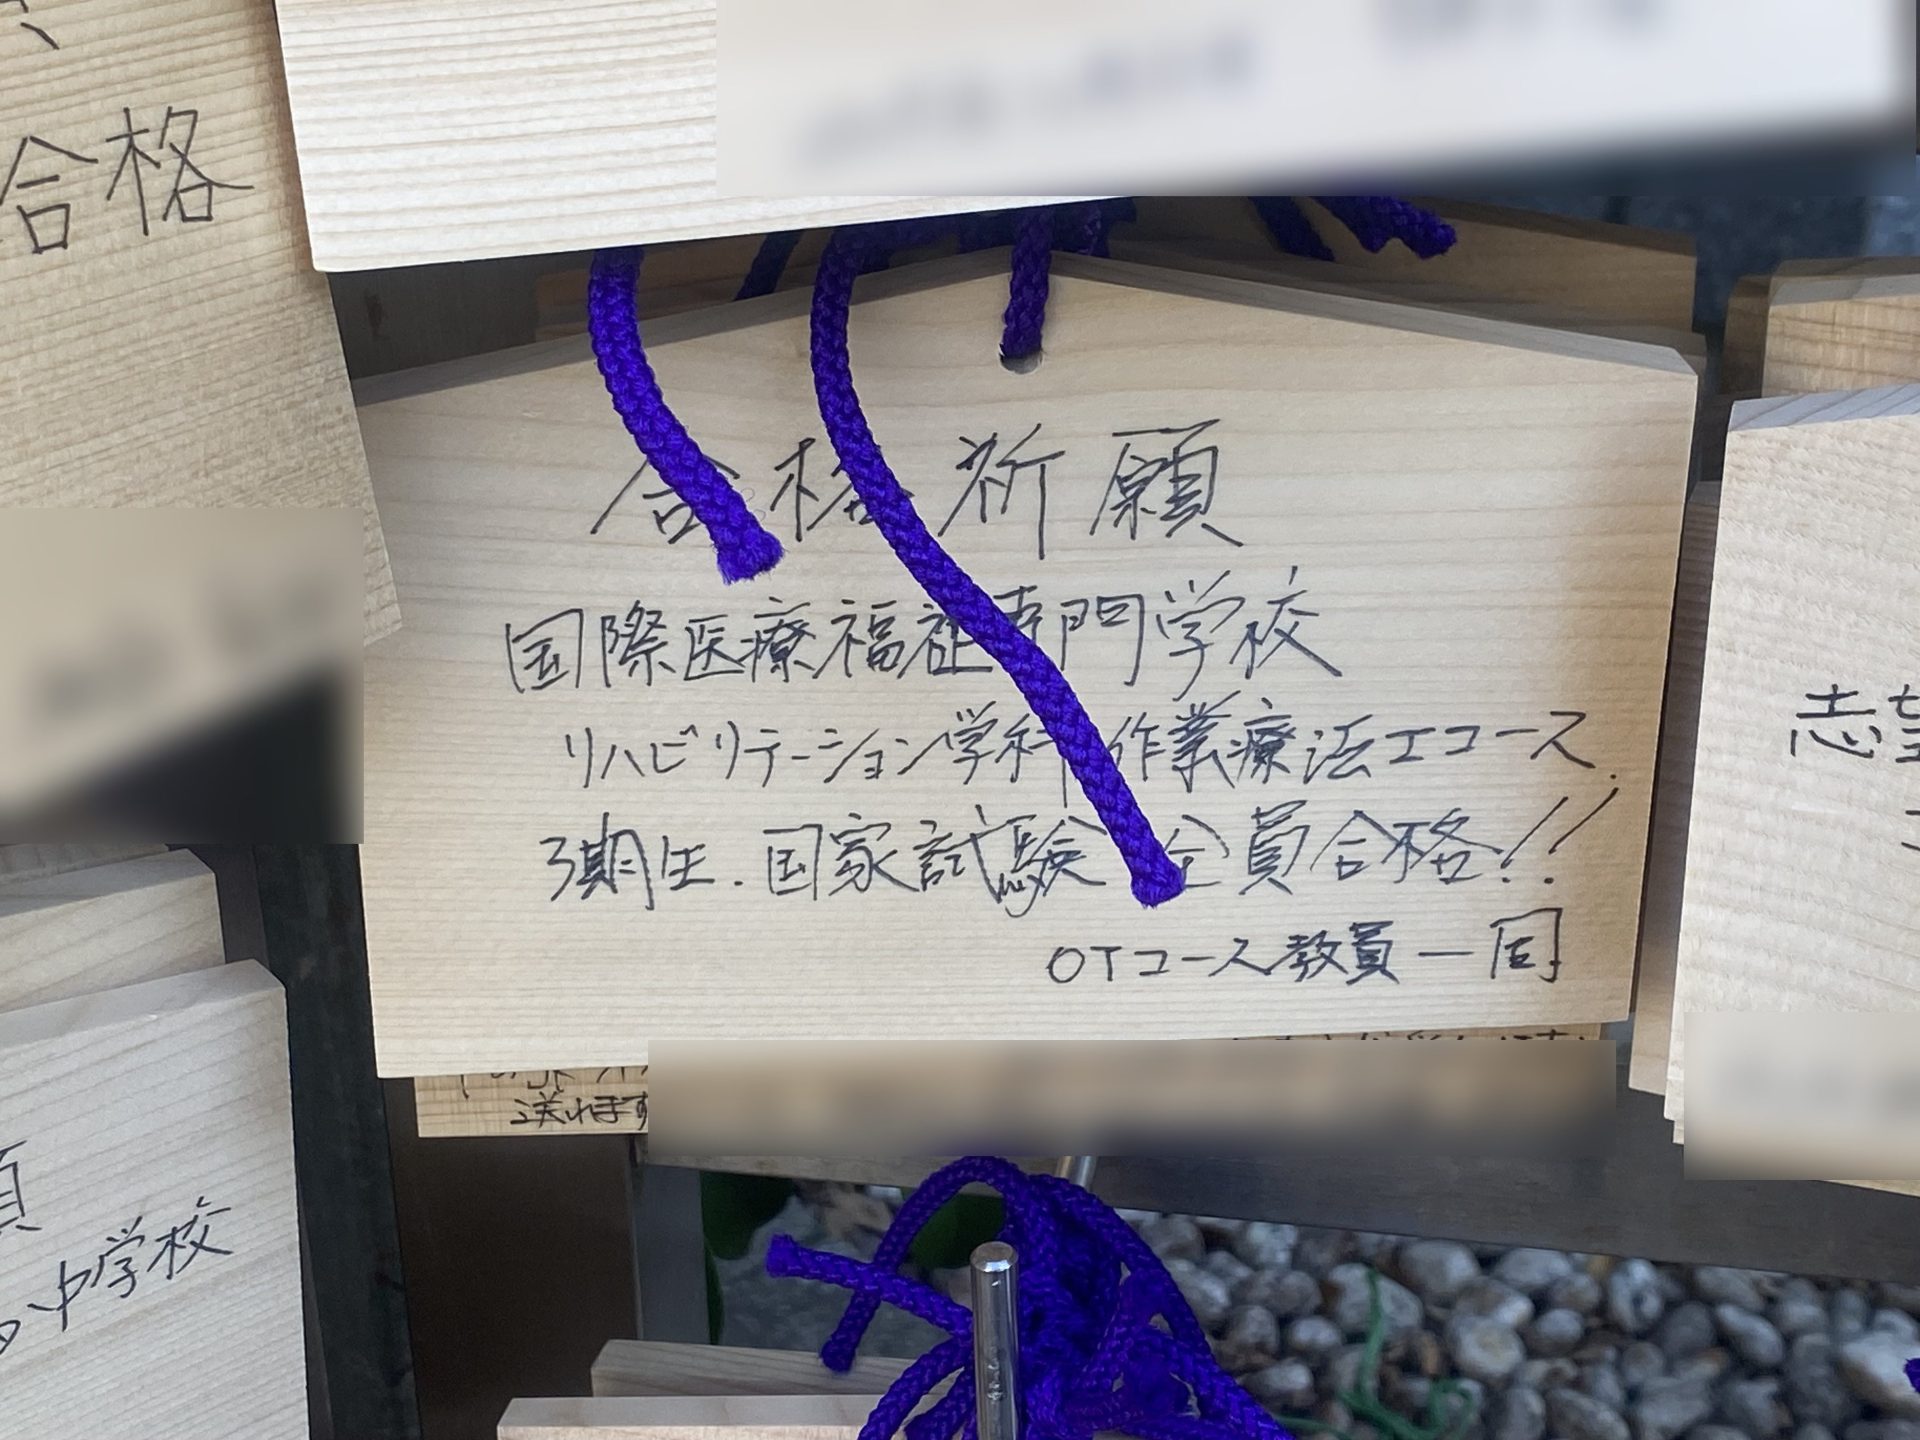 合格
合格祈願
国際医療福祉専門学校
リハビリテーション学科 作業療法エコース.
3期生.国家試験 全員合格!!
OTコース教員一同
志望
送れます
中学校